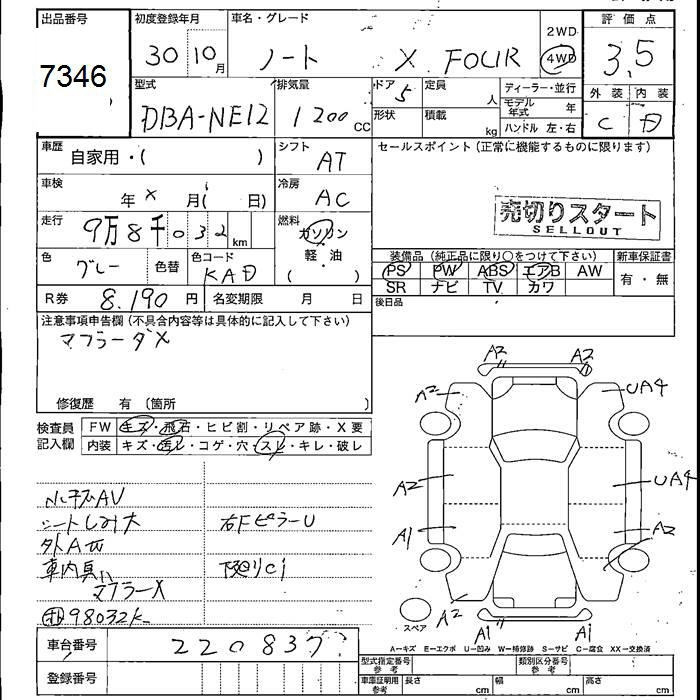 出品番号
7346
初度登録年月
30 10月
車名・グレード
ノート X FOUR
2WD
4WD
評価点
3.5
外装 内装
C D
型式
DBA-NE12
排気量
1200cc
ドア 5
形状
定員 人
積載 kg
ディーラー・並行
モデル年式 年
ハンドル 左・右
車歴
自家用・( )
シフト
AT
セールスポイント(正常に機能するものに限ります)
車検
年 X 月( 日)
冷房
AC
売切りスタート
SELLOUT
走行
9万8千032km
燃料
ガソリン
軽・油
( )
色
グレー
色替
色コード
KAD
装備品(純正品に限り○をつけて下さい)
PS PW ABS エアB AW
SR ナビ TV カワ
新車保証書
有・無
R券
8.190円
名変期限 月 日
後日品
注意事項申告欄(不具合内容等は具体的に記入して下さい)
マフラーダメ
修復歴 有 (箇所 )
検査員
記入欄
FW キズ・飛石・ヒビ割・リペア跡・X要
内装 キズ・汚レ・コゲ・穴・スレ・キレ・破レ
シートしみ大
右FピラーU
下廻りC1
マフラーX
98032K
A2 A2
A2 UA4
A2 UA4
A1 A2
A2
A1 A1
スペア
A−キズ E−エクボ U−凹み W−補修跡 S−サビ C−腐食 XX−交換済
車台番号
220837
登録番号
型式指定番号
参考
類別区分番号
参考
車庫証明用
参考
長さ cm 幅 cm 高さ cm